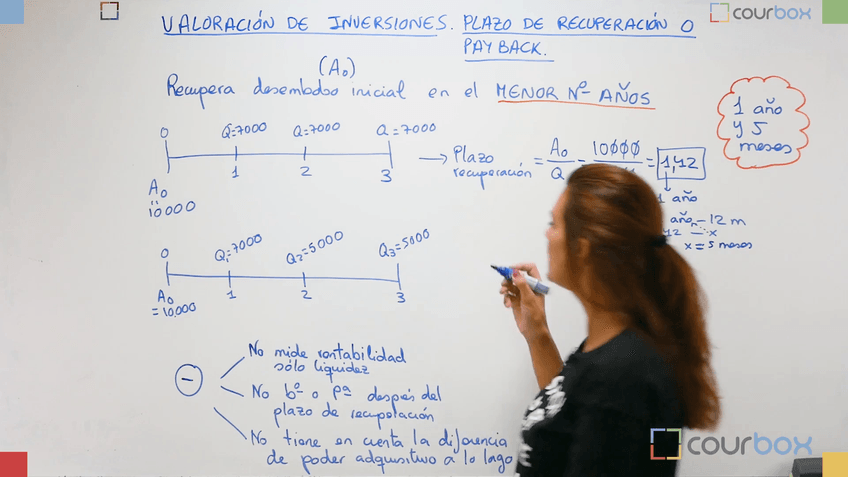 courbox
VALORACIÓN DE INVERSIONES. PLAZO DE RECUPERACIÓN O
PAYBACK.
(A₀)
Recupera desembolso inicial en el MENOR Nº AÑOS
1 año
y 5
meses
0 Q=7000 Q=7000 Q=7000
1 2 3
A₀
10000
→ Plazo
recuperación
= A₀ = 10000 = 1,42
Q
1 año
año – 12 m
x
x = 5 meses
0 Q₁=7000 Q₂=5000 Q₃=5000
1 2 3
A₀
=10,000
–
No mide rentabilidad
sólo liquidez
No bº o pª después del
plazo de recuperación
No tiene en cuenta la diferencia
de poder adquisitivo a lo lago
courbox